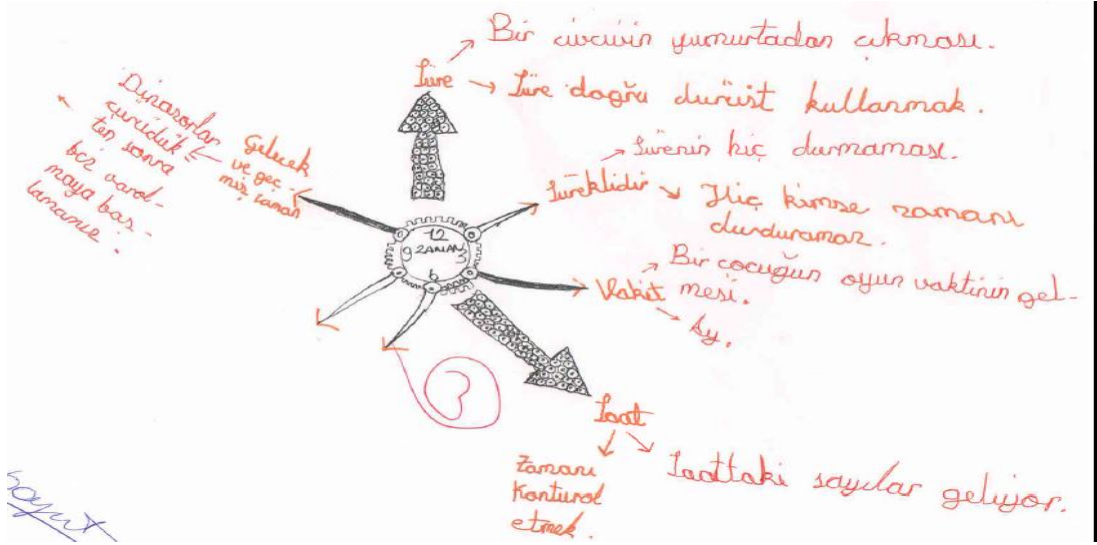 Bir civcivin yumurtadan çıkması.
Süre
Süre doğru dürüst kullanmak.
Sürenin hiç durmaması.
Süreklidir
Hiç kimse zamanı
durduramaz.
Bir çocuğun oyun vaktinin gel-
Vakit mesi.
Ay.
Saat
Zamanı
Konturol
etmek.
Saattaki sayılar geliyor.
Gelecek
ve geç-
miş zaman
Dinazorlar
çürüdük-
ten sonra
boz varol-
maya baş-
lamamız.
12
9 ZAMAN 3
6
3
Soyut